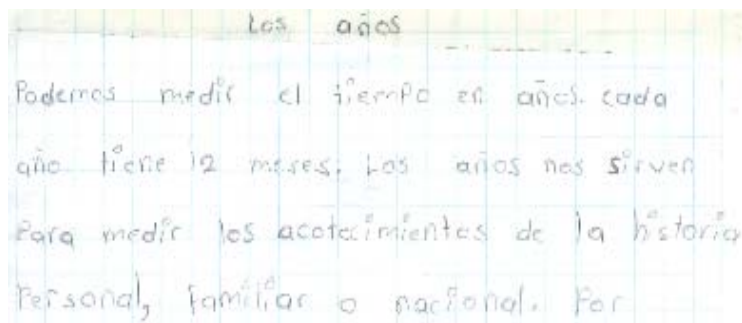 Los años
Podemos medir el tiempo en años. cada
año tiene 12 meses. Los años nos sirven
Para medir los acotecimientos de la historia
Personal, familiar o nacional. Por